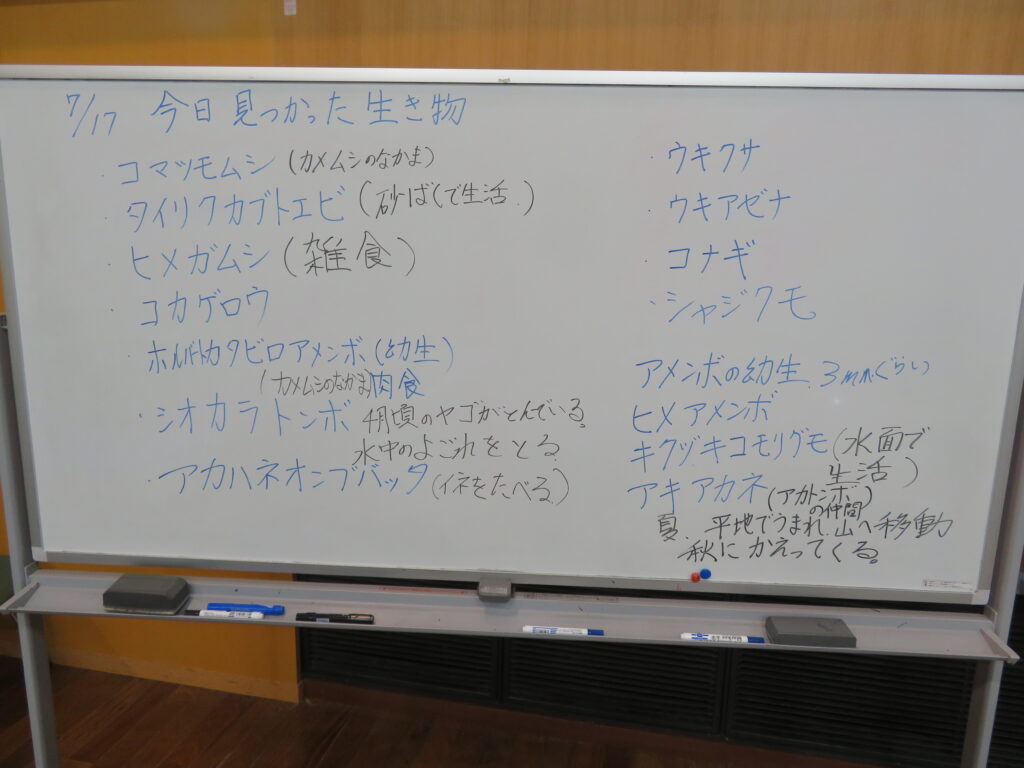 7/17 今日見つかった生き物
・コマツモムシ(カメムシのなかま)
・タイリクカブトエビ(砂ばくで生活)
・ヒメガムシ(雑食)
・コカゲロウ
・ホルバートカタビロアメンボ(幼生)
(カメムシのなかま)肉食
・シオカラトンボ 4月頃のヤゴがとんでいる。
水中のよごれをとる
・アカハネオンブバッタ(イネをたべる)
・ウキクサ
・ウキアゼナ
・コナギ
・シャジクモ
アメンボの幼生.3mmぐらい
ヒメアメンボ
キクヅキコモリグモ(水面で
生活)
アキアカネ(アカトンボ)
の仲間
夏.平地でうまれ.山へ移動
秋にかえってくる。